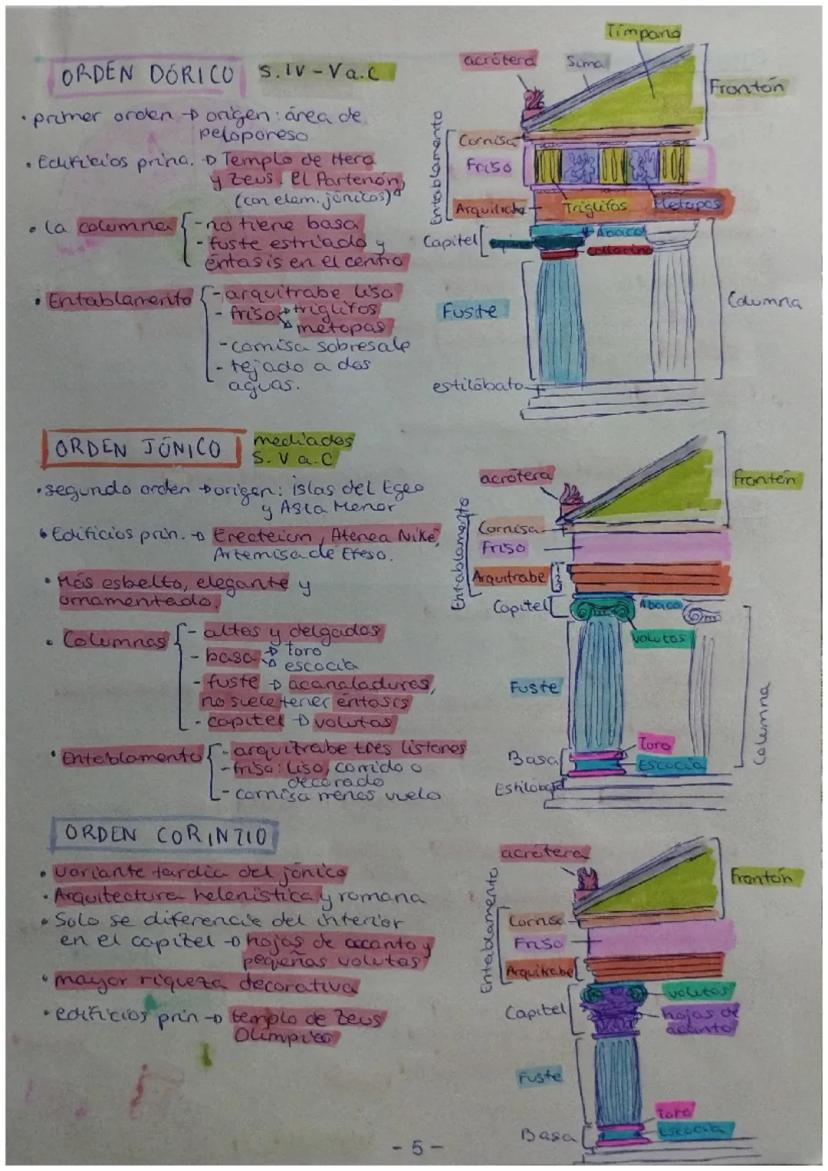 ORDEN DÓRICO S. IV - V a.C
• primer orden → origen: área de
peloponeso
• Edificios princ. → Templo de Hera
y Zeus, El Partenón,
(con elem. jónicos)
• La columna - no tiene basa
- fuste estriado y
éntasis en el centro
• Entablamento - arquitrabe liso
- friso → triglifos
→ metopas
- cornisa sobresale
- tejado a dos
aguas.
Tímpano
acrótera
Sima
Frontón
Entablamento
Cornisa
Friso
Arquitrabe
Triglifos
Metopas
Capitel
equino
Abaco
collarino
Fuste
Columna
estilóbato
ORDEN JÓNICO mediados
S. V a.C
• segundo orden → origen: islas del Egeo
y Asia Menor
• Edificios prin. → Erecteion, Atenea Niké,
Artemisa de Efeso.
• Más esbelto, elegante y
ornamentado.
• Columnas - altas y delgadas
- basa → toro
→ escocia
- fuste → acanaladures,
no suele tener éntasis
- capitel → volutas
• Entablamento - arquitrabe tres listones
- friso: liso, corrido o
decorado
- cornisa menos vuelo
acrótera
frontón
Entablamento
Cornisa
Friso
Arquitrabe
1
2
3
Capitel
Abaco
volutas
Fuste
Columna
Basa
Toro
Escocia
Estilóbat
ORDEN CORINTIO
• variante tardía del jónico
• Arquitectura helenística y romana
• Solo se diferencia del interior
en el capitel → hojas de acanto y
pequeñas volutas
• mayor riqueza decorativa
• edificios prin → templo de Zeus
Olímpico
acrótera
Frontón
Entablamento
Cornisa
Friso
Arquitrabe
Capitel
volutas
hojas de
acanto
Fuste
Toro
Basa
Escocia
- 5 -